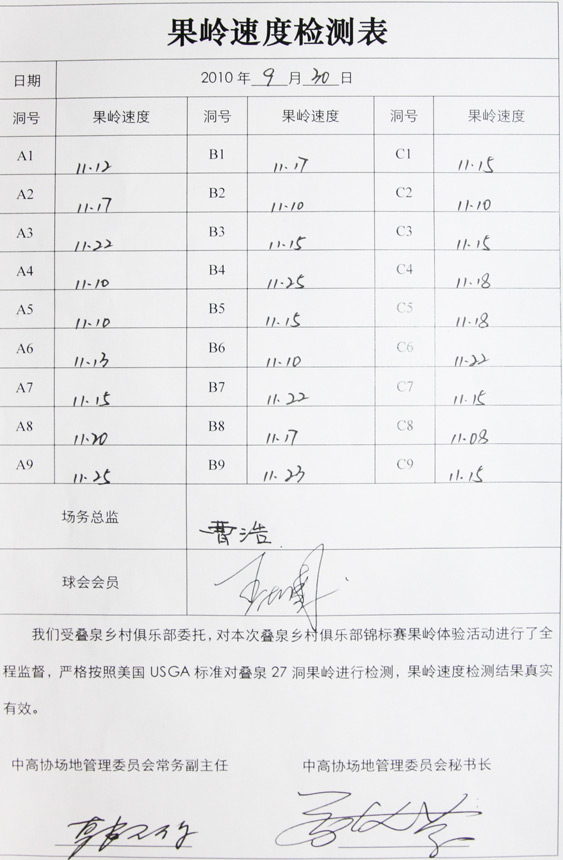 果岭速度检测表
日期 2010 年 9 月 30 日
洞号 果岭速度 洞号 果岭速度 洞号 果岭速度
A1 11.12 B1 11.17 C1 11.15
A2 11.17 B2 11.10 C2 11.10
A3 11.22 B3 11.15 C3 11.15
A4 11.10 B4 11.25 C4 11.18
A5 11.10 B5 11.15 C5 11.18
A6 11.13 B6 11.10 C6 11.22
A7 11.15 B7 11.22 C7 11.15
A8 11.20 B8 11.17 C8 11.08
A9 11.25 B9 11.23 C9 11.15
场务总监 曹浩
球会会员
我们受叠泉乡村俱乐部委托，对本次叠泉乡村俱乐部锦标赛果岭体验活动进行了全
程监督，严格按照美国 USGA 标准对叠泉 27 洞果岭进行检测，果岭速度检测结果真实
有效。
中高协场地管理委员会常务副主任 中高协场地管理委员会秘书长